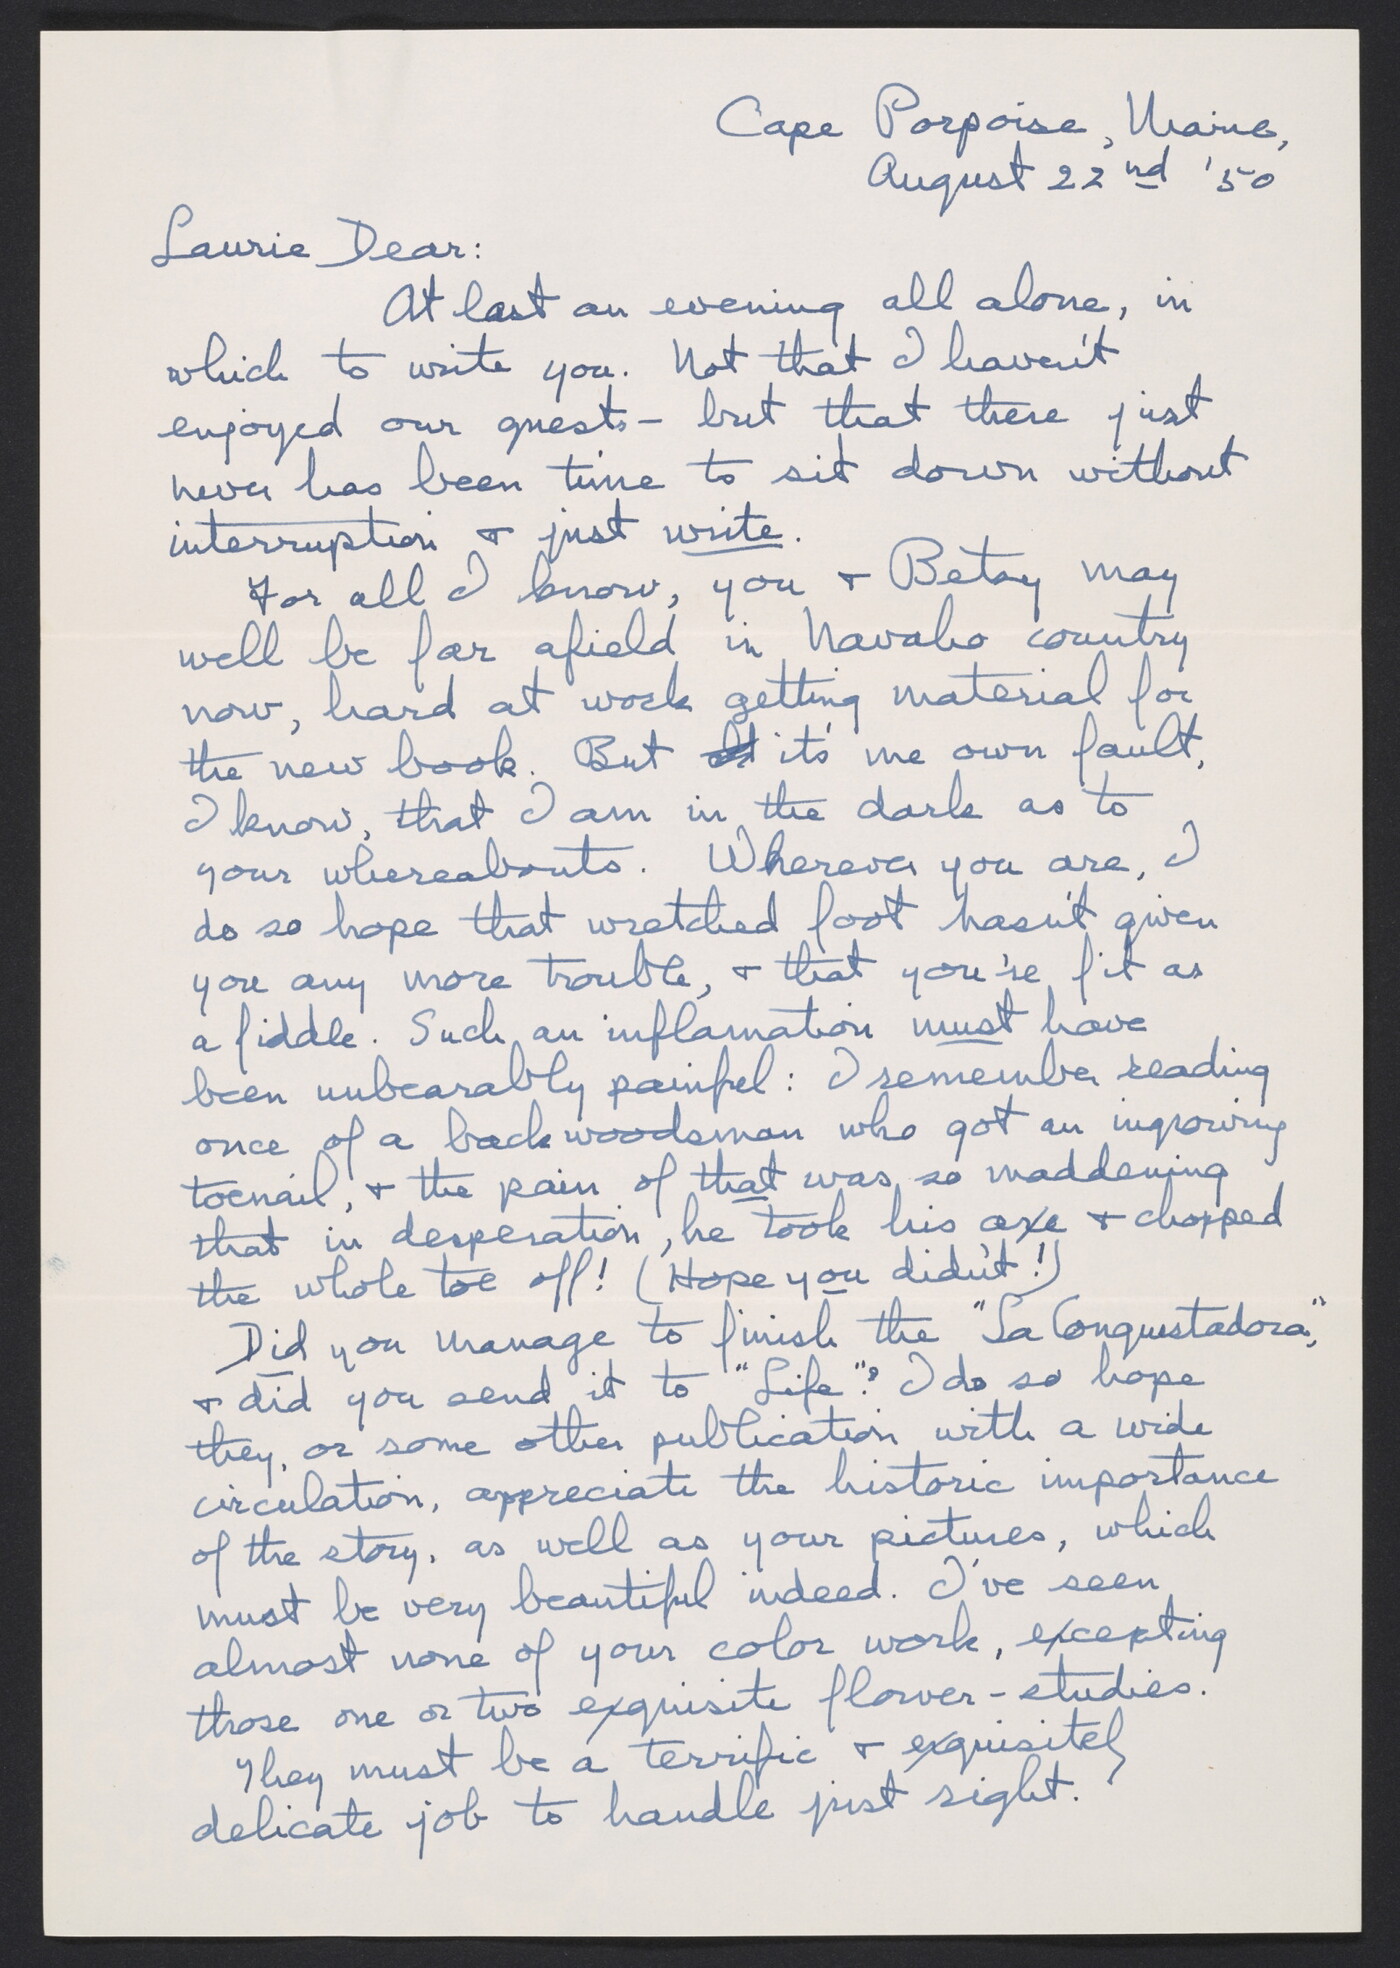 Cape Porpoise, Maine,
August 22nd '50
Laurie Dear:
At last an evening all alone, in
which to write you. Not that I haven't
enjoyed our guests - but that there just
never has been time to sit down without
interruption + just write.
For all I know, you + Betsy may
well be far afield in Navaho country
now, hard at work getting material for
the new book. But it's me own fault,
I know, that I am in the dark as to
your whereabouts. Wherever you are, I
do so hope that wretched foot hasn't given
you any more trouble, + that you're fit as
a fiddle. Such an inflamation must have
been unbearably painful: I remember reading
once of a backwoodsman who got an ingrowing
toenail, + the pain of that was so maddening
that in desperation, he took his axe + chopped
the whole toe off! (Hope you didn't!)
Did you manage to finish the "La Conquistadora,"
+ did you send it to "Life"? I do so hope
they, or some other publication with a wide
circulation, appreciate the historic importance
of the story, as well as your pictures, which
must be very beautiful indeed. I've seen
almost none of your color work, excepting
those one or two exquisite flower-studies.
They must be a terrific + exquisitely
delicate job to handle just right.